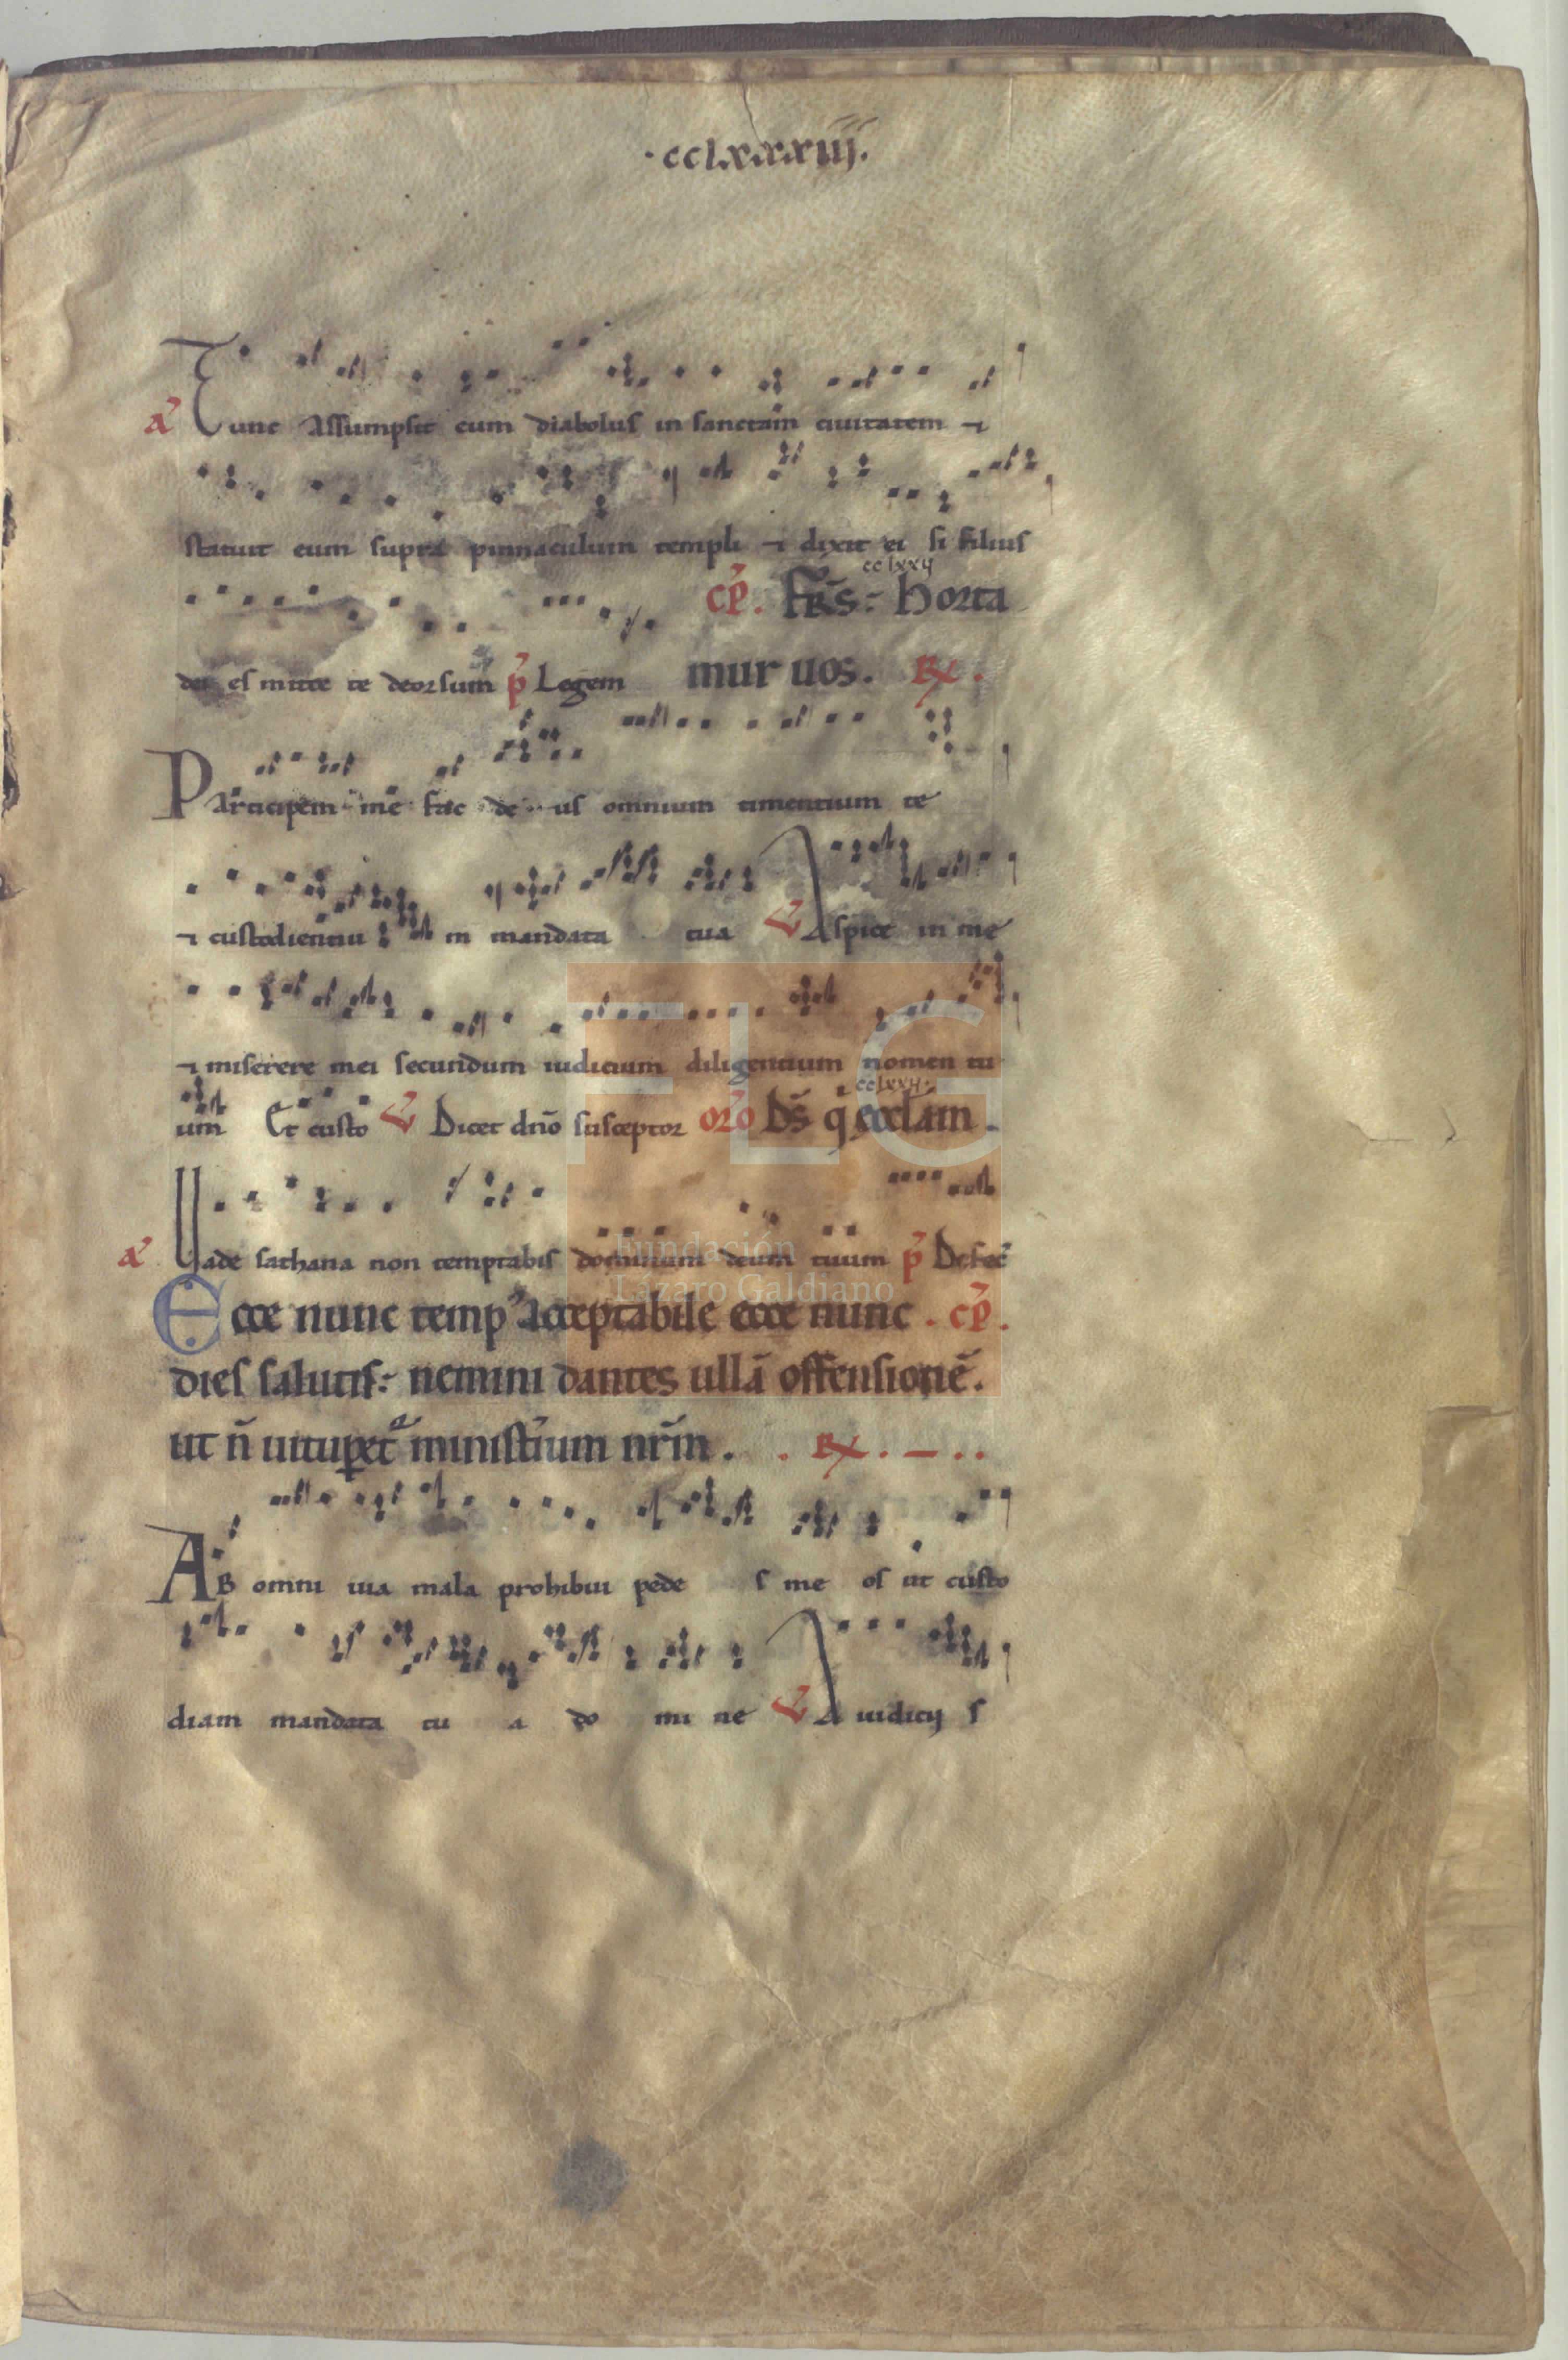 ·cclxxxiiij·
a᷃ Tunc assumpsit eum diabolus in sanctam ciuitatem ⁊
statuit eum supra pinnaculum templi ⁊ dixit ei si filius
cclxxij
cp̄. Fr̄s: horta
dei es mitte te deorsum p̄ Legem mur uos. ℞.
Participem me fac de us omnium timentium te
⁊ custodientiu m in mandata tua ℣ Aspice in me
⁊ miserere mei secundum iudicium diligentium nomen tu
cclxxij.
um Et custo ℣ Dicet dn̄o susceptor or̄o Ds̄ q̄ ecclām.
a᷃ Uade sathana non temptabis dominum deum tuum p̄ Defec̄
Ecce nunc temp᾿ acceptabile ecce nunc. cp̄.
dies salutis: nemini dantes ullā offensionē.
ut n̄ uituꝑet᷑ minist̄ium nr̄m. . ℞. – ..
Ab omni uia mala prohibui pede s me os ut custo
diam mandata tu a do mi ne ℣ A iudicij s
FLG
Fundación
Lázaro Galdiano